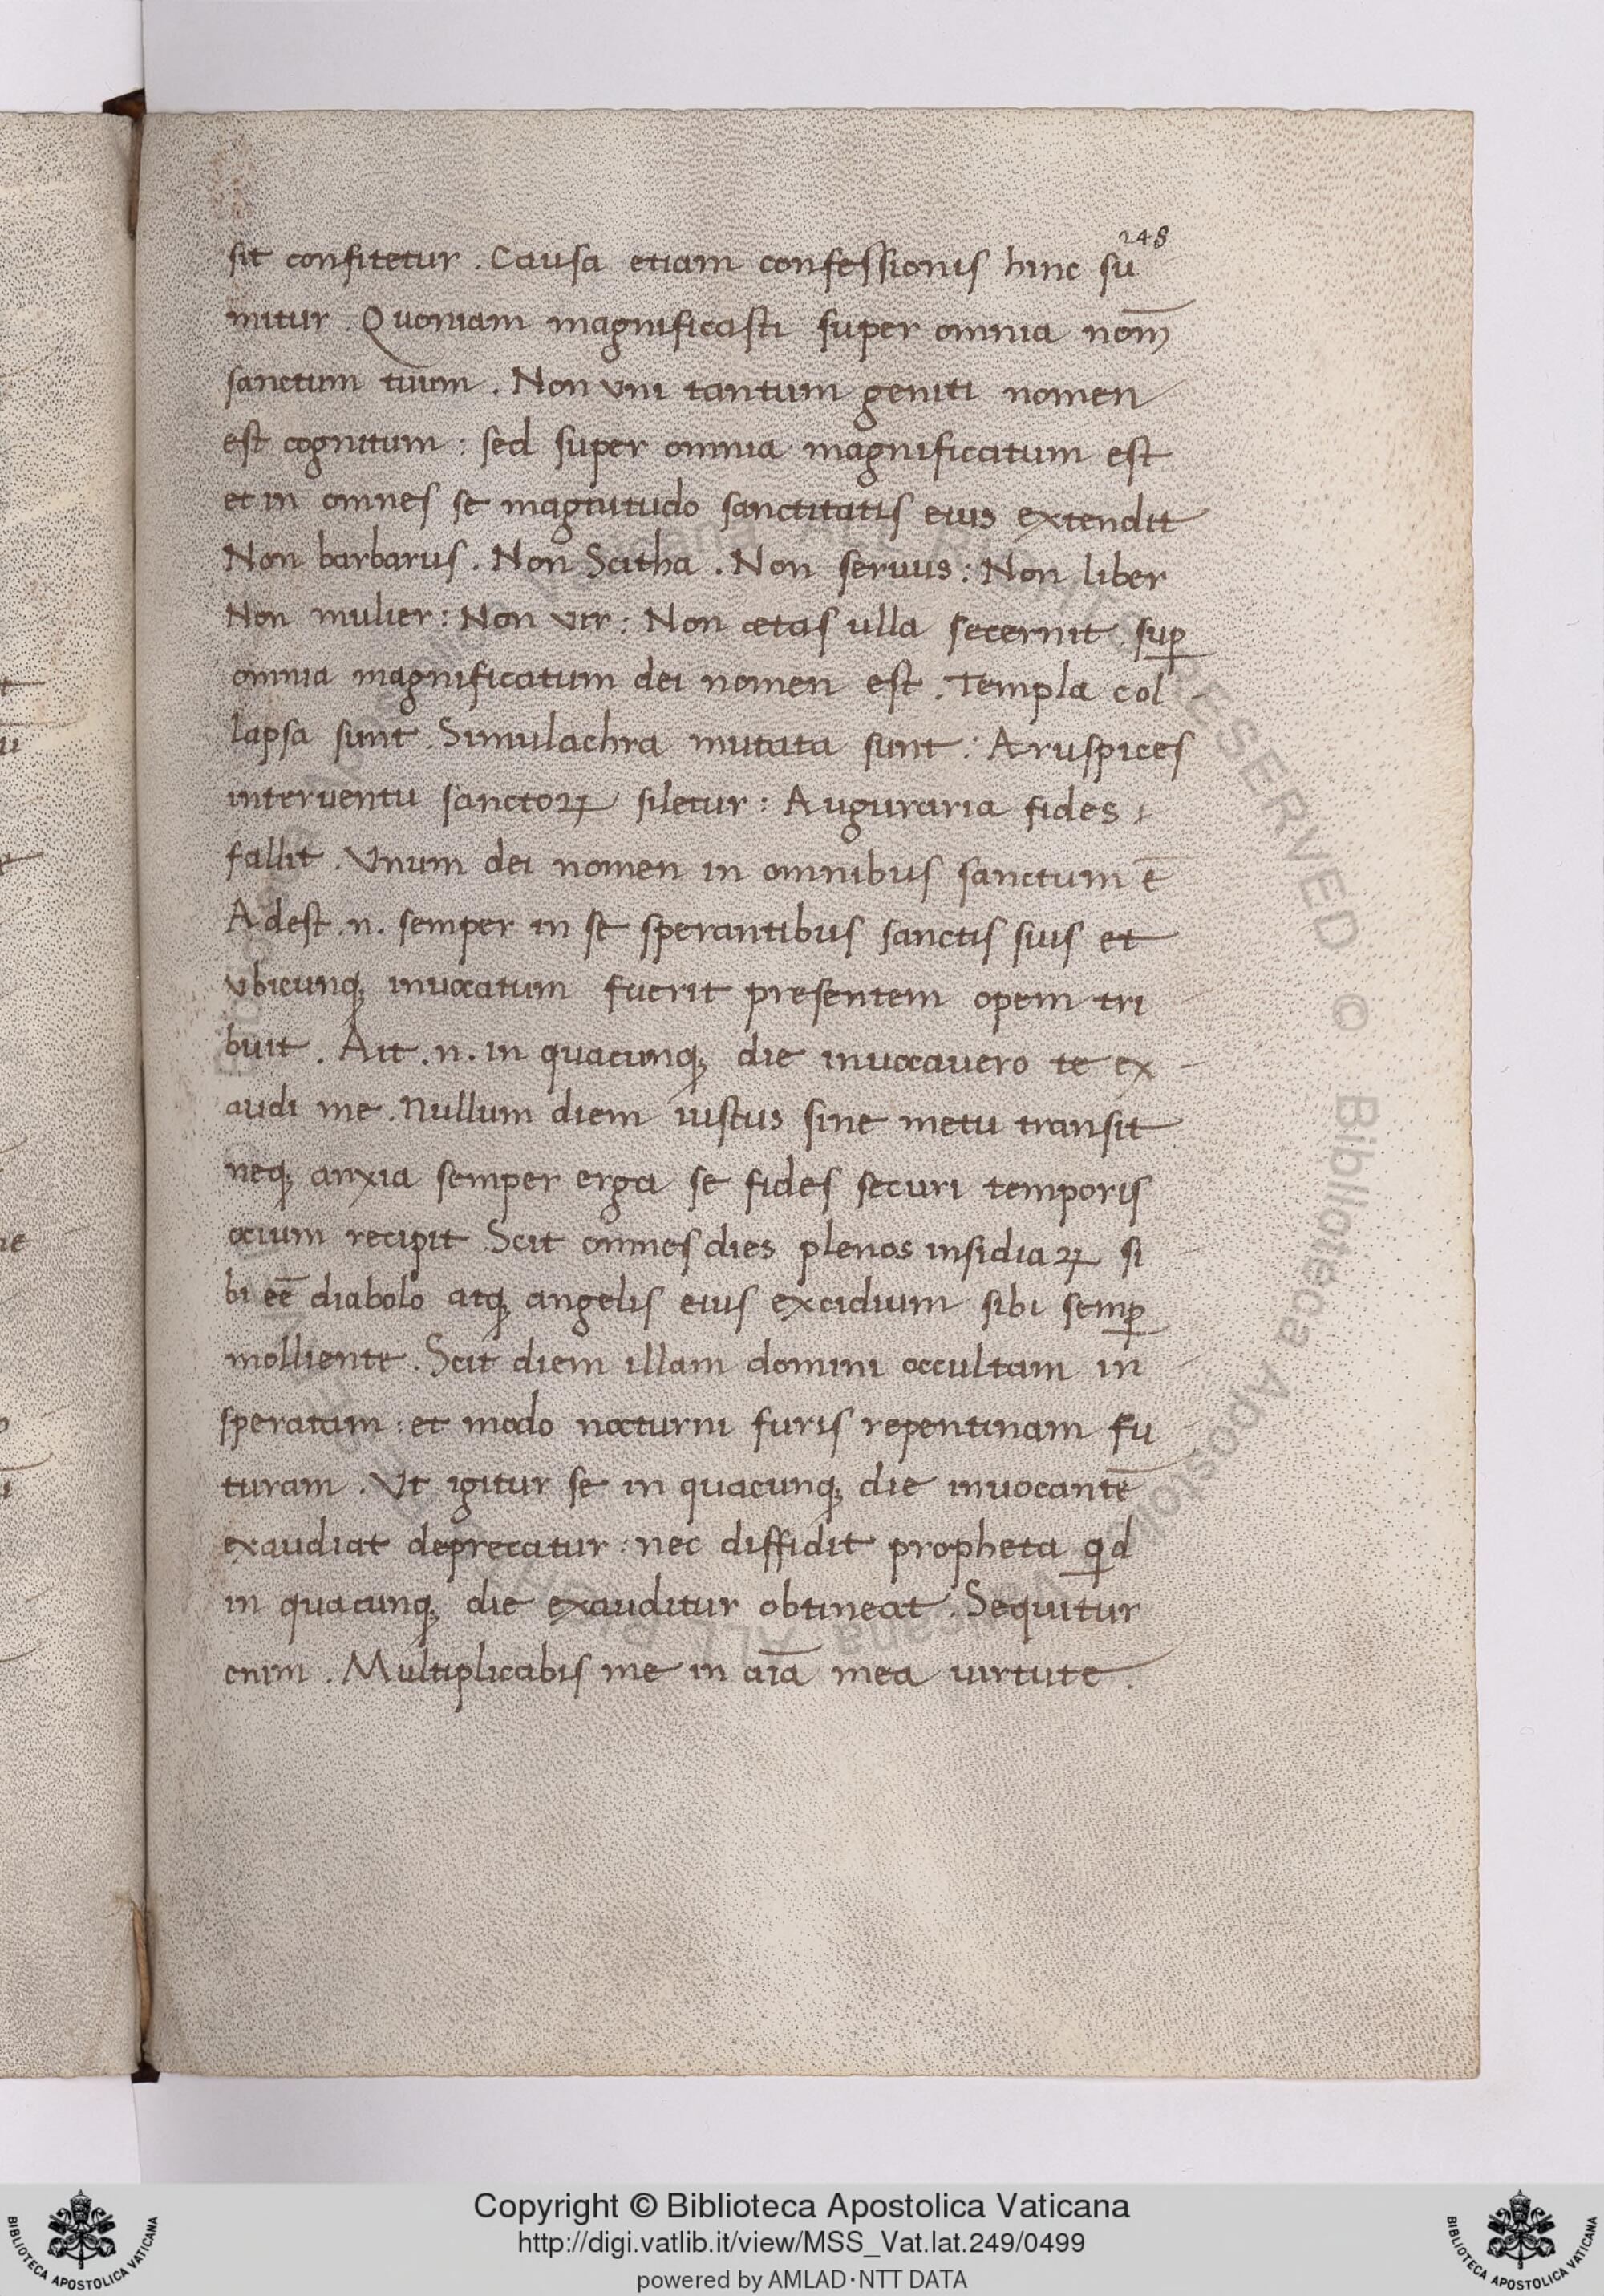 248
sit confitetur . Causa etiam confessionis hinc su
mitur . Quoniam magnificasti super omnia nom̄
sanctum tuum . Non vni tantum geniti nomen
est cognitum : sed super omnia magnificatum est
et in omnes se magnitudo sanctitatis eius extendit
Non barbarus . Non Scitha . Non seruus : Non liber
Non mulier : Non vir : Non ætas ulla secernit . suꝑ
omnia magnificatum dei nomen est . Templa col
lapsa sunt . Simulachra mutata sunt : Aruspices
interuentu sanctoꝝ siletur : Auguraria fides
fallit . Vnum dei nomen in omnibus sanctum ē
Adest .n. semper in se sperantibus sanctis suis et
vbicunqꝫ inuocatum fuerit presentem opem tri
buit . Ait .n. in quacunqꝫ die inuocauero te ex
audi me . Nullum diem iustus sine metu transit
neqꝫ anxia semper erga se fides securi temporis
ocium recipit Scit omnes dies plenos insidiaꝝ si
bi eē diabolo atqꝫ angelis eius excidium sibi semꝑ
molliente . Scit diem illam domini occultam in
speratam : et modo nocturni furis repentinam fu
turam . Vt igitur se in quacunqꝫ die inuocantē
exaudiat deprecatur : nec diffidit propheta qd
in quacunqꝫ die exauditur obtineat . Sequitur
enim . Multiplicabis me in aīa mea uirtute .
Copyright © Biblioteca Apostolica Vaticana
http://digi.vatlib.it/view/MSS_Vat.lat.249/0499
powered by AMLAD·NTT DATA
BIBLIOTECA APOSTOLICA VATICANA
BIBLIOTECA APOSTOLICA VATICANA